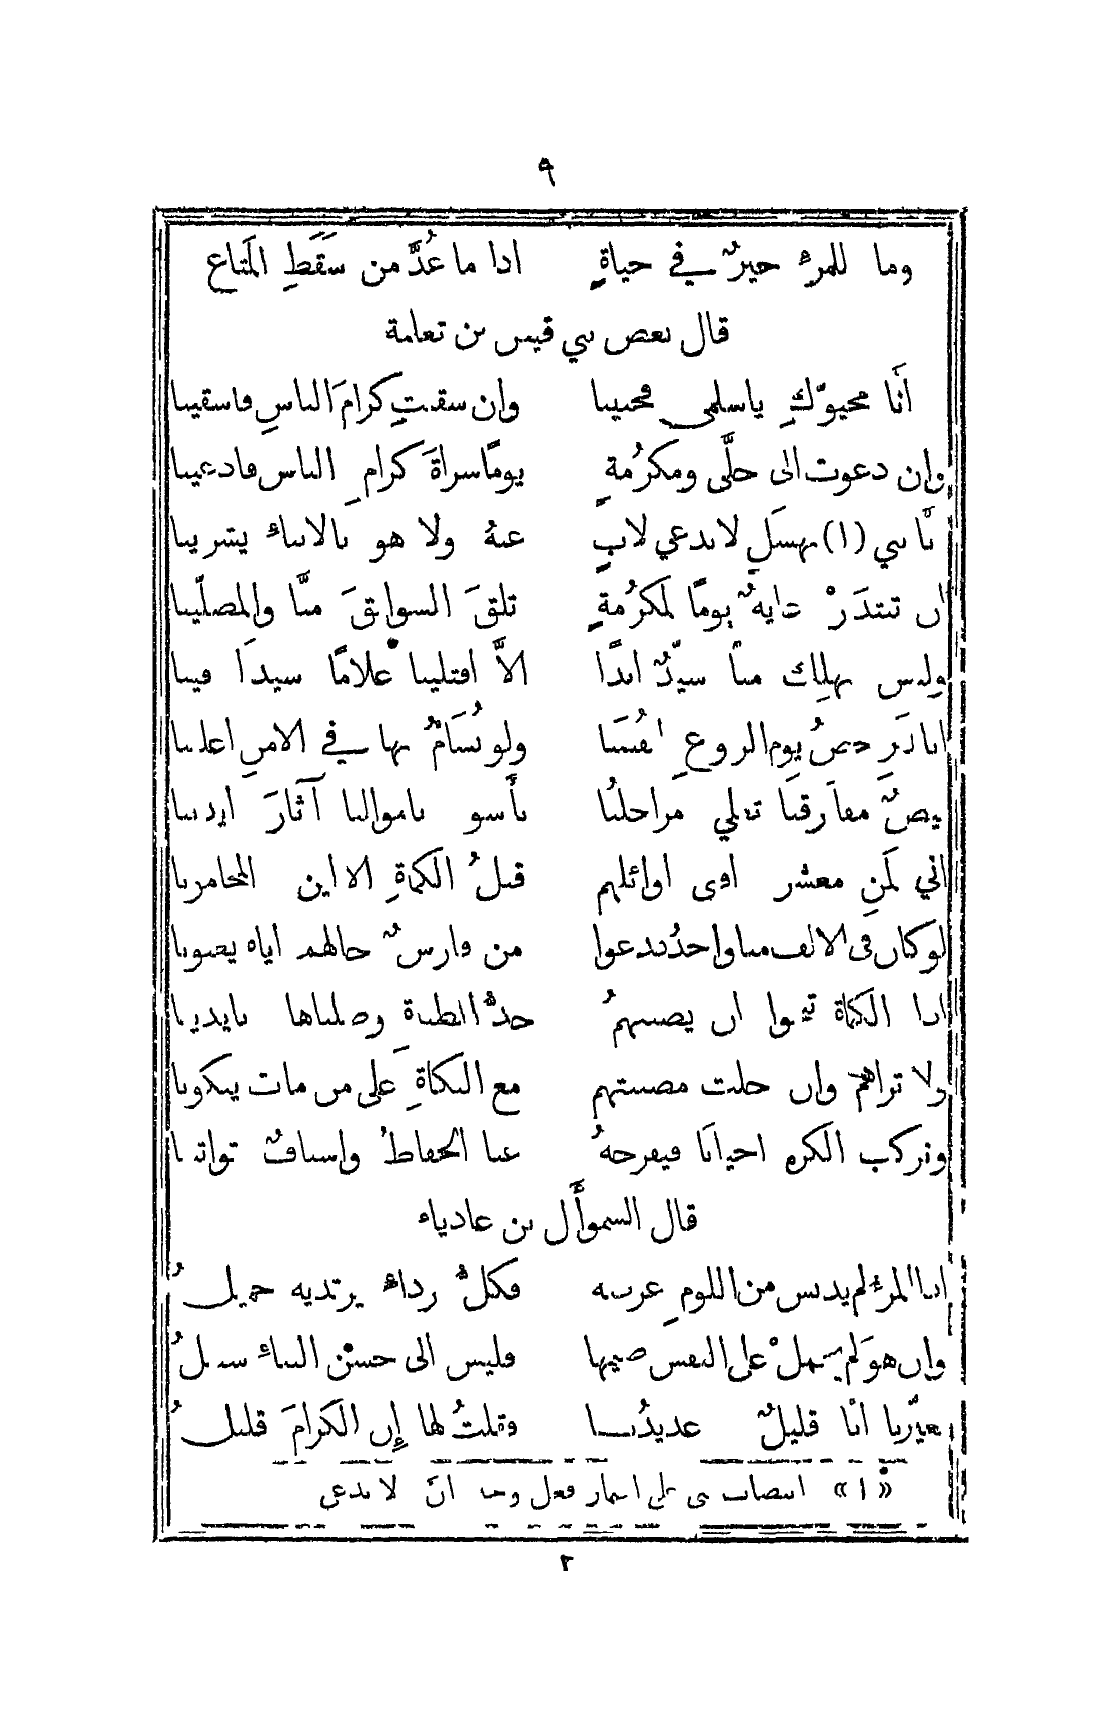 ٩
وما للمرء خيرٌ في حياةٍ اذا ما عُدَّ من سَقَطِ المَتاع
قال بعض بني قيس بن ثعلبة
أنا محيوّكِ ياسلمى فحيينا وان سقيتِ كرامَ الناسِ فاسقينا
وان دعوت الى جلَّى ومكرُمةٍ يومًا سراةَ كرامِ الناس فادعينا
نَّا بني (١) نهشلٍ لا ندعي لابٍ عنهُ ولا هو بالابناء يشرينا
ان تبتدَرْ غايةٌ يومًا لمكرُمةٍ تلقَ السوابقَ منَّا والمصلّينا
وليس يهلك منا سيّدٌ ابدًا الاَّ افتلينا غلامًا سيدًا فينا
انا لنرخصُ يوم الروعِ انفُسَنا ولو نُسَامُ بها في الامنِ اغلينا
بيضٌ مفارقنَا تغلي مراجلنُا نأسو باموالنا آثارَ أيدينا
اني لَمن معشر افنى اوائلهم قيلُ الكماةِ الا اين المحامونا
لوكان في الالف منا واحدٌ فدعوا من فارسٌ خالهم اياه يعنونا
اذا الكماة تنحوا ان يصيبهمُ حدُّ الظباة وصلناها بايدينا
ولا تراهم وان جلت مصيبتهم مع البكاةِ على من مات يبكونا
ونركب الكره احيانَا فيفرجهُ عنا الحفاظُ واسيافٌ تواتينا
قال السموأَل بن عادياء
اذا المرء لم يدنس من اللومِ عرضه فكلُّ رداء يرتديه جميلُ
وان هو لَم يحملْ على النفس ضيمها فليس الى حسن الثناء سبيلُ
تعيّرنا انَّا قليلٌ عديدُنا وقلتُ لها إن الكرامَ قليلُ
«١» انتصاب بني على اضمار فعل وخبر انَّ لا ندعي
٢